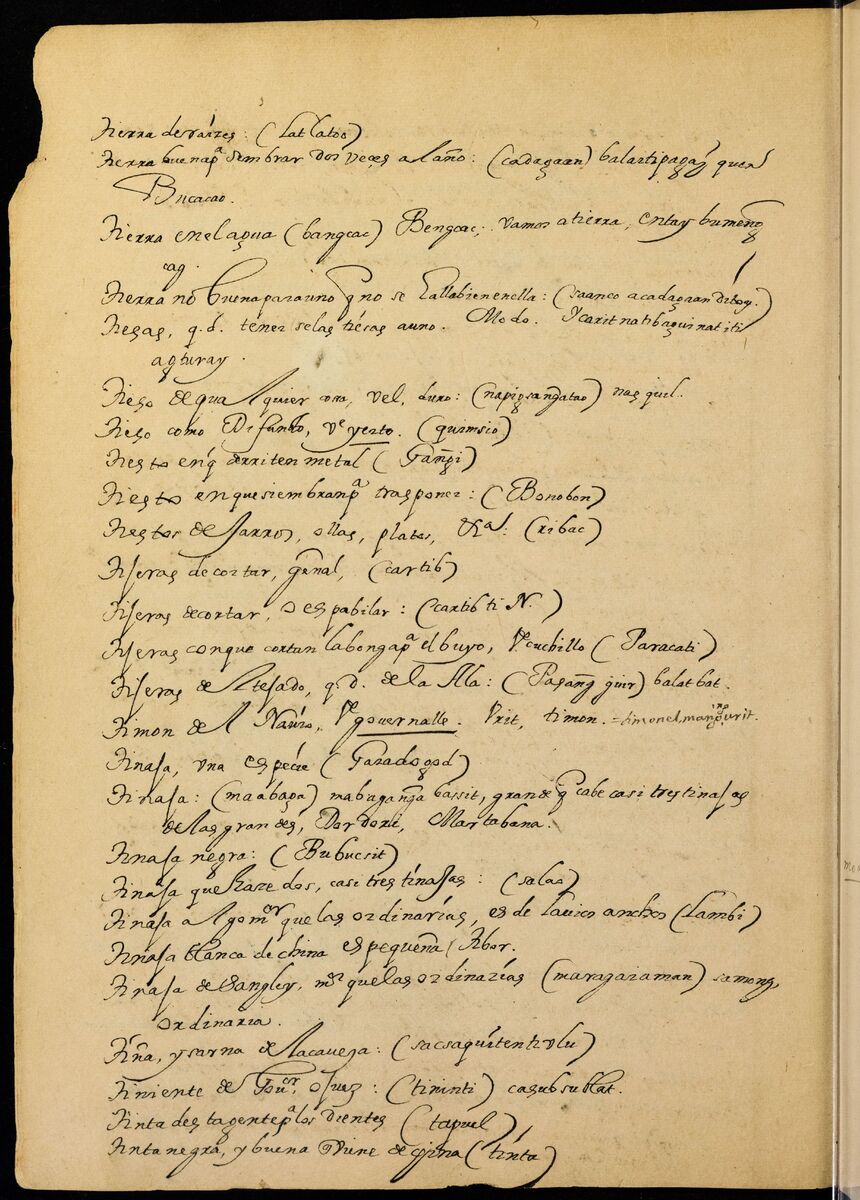 Tierra de raízes: (Latlatoc)
Tierra buena pᵃ sembrar dos veçes al año: (cadagaan) balartipagay quen
Bucacao.
Tierra enel agua (bangcag) Bengcag: vamos a tierra, entay bumeng
cag.
Tierra no buena para uno q̃ no se halla bien en ella: (saanco a cadagaan ditoy.)
Tiesas, q.d. tener selas tiesas a uno. Modo. Ycarit na ti baquinatiti
agturay.
Tieso de qualquier cosa, vel, duro: (napigsangatao) nasquil.
Tieso como Difunto, vᵉ yerto. (quimsio)
Tiesto en q̃ derriten metal (Gangi)
Tiesto en que siembran pᵃ trasponer: (Bonobon)
Tiestos de Jarros, ollas, platos, &ᵃ: (ribac)
Tijeras de cortar, gñal, (cartib)
Tijeras de cortar, o espabilar: (cartib ti N.)
Tijeras con que cortan la bonga pᵃ el buyo, vᵉ cuchillo (Paracati)
Tijeras de Atejado, q.d. de la Illa: (Pagang̃ guir) balatbat.
Timon del Nauio, vᵉ governalle. Vrit, timon. = timonel, mangurit.
Tinaja, vna espeçie (Garadogod)
Tinaja: (maabaga) mabugang̃a bassit, grande q̃ cabe casi tres tinajas
de las grandes, Dordori, Martabana.
Tinaja negra: (Bubucsit)
Tinaja que haze dos, casi tres tinajas: (salao)
Tinaja algo mᵒʳ que las ordinarias, es de lavios anchos (Lambi)
Tinaja blanca de china es pequeña, Abor.
Tinaja de Sangley, mᵒʳ que las ordinarias (maragaiaman) samong,
ordinaria.
Tiña, y sarna de la caueza: (sacsaquitentivlu)
Tiniente de Gouᵒʳ, o juez: (tininti) casubsublat.
Tinta desta gente pᵃ los dientes (tapuel)
Tinta negra, y buena viene de china (tinta)